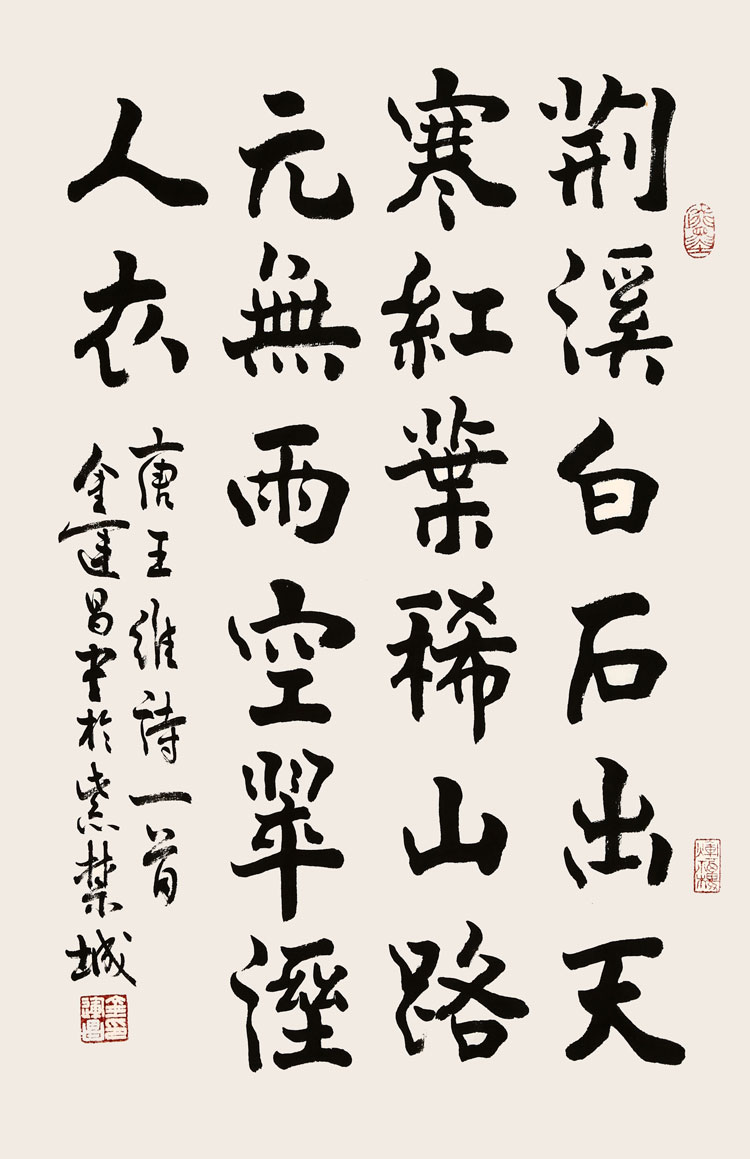 荆溪白石出天
寒紅葉稀山路
元無雨空翠溼
人衣
唐王維詩一首
金運昌书於紫禁城
金運昌印